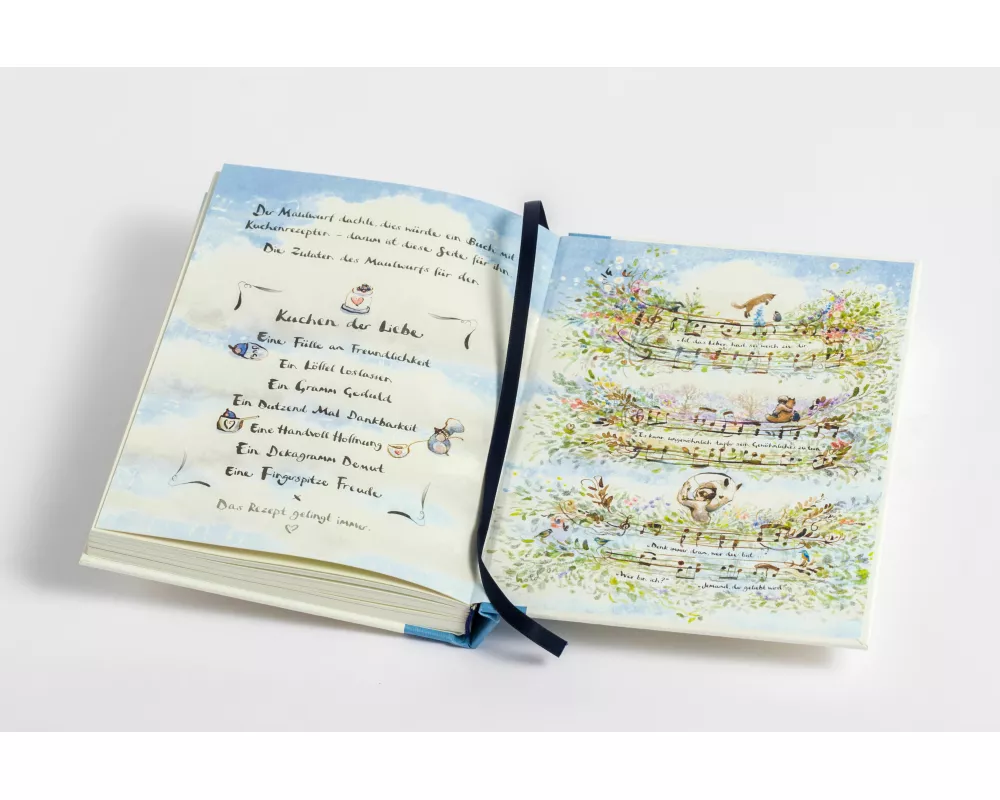 Der Maulwurf dachte, dies würde ein Buch mit
Kuchenrezepten – darum ist diese Seite für ihn.
Die Zutaten des Maulwurfs für den
Kuchen der Liebe
Eine Fülle an Freundlichkeit
Ein Löffel Loslassen
Ein Gramm Geduld
Ein Dutzend Mal Dankbarkeit
Eine Handvoll Hoffnung
Ein Dekagramm Demut
Eine Fingerspitze Freude
x
Das Rezept gelingt immer.
„Ist das Leben hart, sei weich zu dir
„Es kann ungewöhnlich tapfer sein, Gewöhnliches zu tun
„Denk immer dran, wer du bist..."
„Wer bin ich?"
„Jemand, der geliebt wird